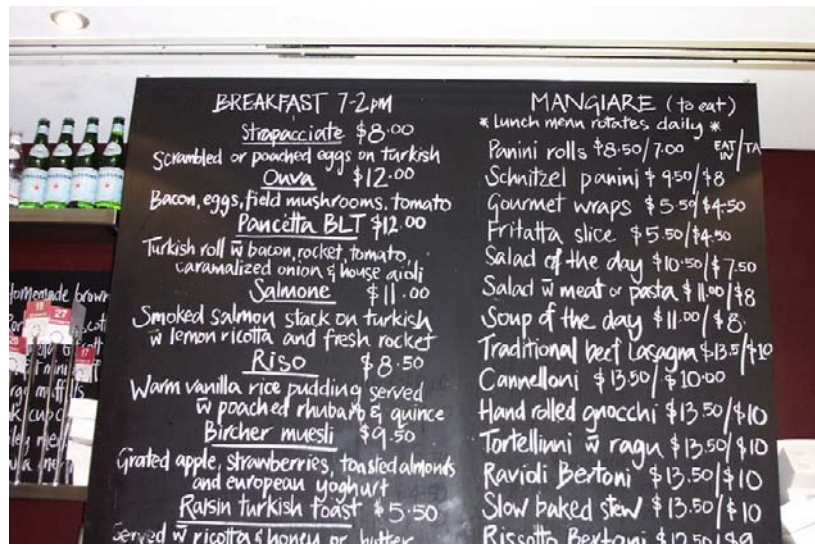 BREAKFAST 7-2pm
Strapacciate $8.00
Scrambled or poached eggs on turkish
Ouva $12.00
Bacon, eggs, field mushrooms, tomato
Pancetta BLT $12.00
Turkish roll w̄ bacon, rocket, tomato,
caramalized onion & house aioli
Salmone $11.00
Smoked salmon stack on turkish
w̄ lemon ricotta and fresh rocket
Riso $8.50
Warm vanilla rice pudding served
w̄ poached rhubarb & quince
Bircher muesli $9.50
Grated apple, strawberries, toasted almonds
and european yoghurt
Raisin turkish toast $5.50
Served w̄ ricotta & honey or butter
MANGIARE (to eat)
* Lunch menu rotates daily *
Panini rolls $8.50/7.00 EAT IN/TA
Schnitzel panini $9.50/$8
Gourmet wraps $5.50/$4.50
Fritatta slice $5.50/$4.50
Salad of the day $10.50/$7.50
Salad w̄ meat or pasta $11.00/$8
Soup of the day $11.00/$8
Traditional beef Lasagna $13.5/$10
Cannelloni $13.50/$10.00
Hand rolled gnocchi $13.50/$10
Tortellinni w̄ ragu $13.50/$10
Ravioli Bertoni $13.50/$10
Slow baked stew $13.50/$10
Rissotto Bertoni $12.50/$9
Homemade brown
19
27
20
17